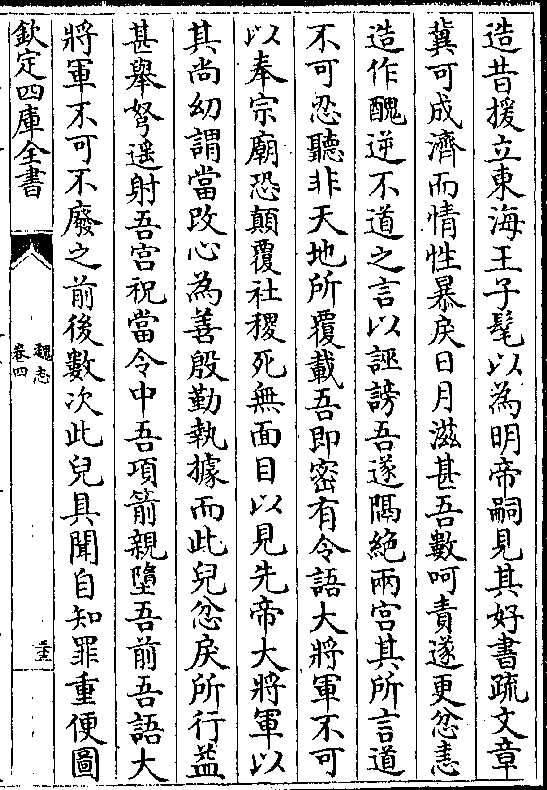 造昔援立東海王子髦以為明帝嗣見其好書疏文章
冀可成濟而情性暴戾日月滋甚吾數呵責遂更忿恚
造作醜逆不道之言以誣謗吾遂隔絶兩宫其所言道
不可忍聽非天地所覆載吾即密有令語大將軍不可
以奉宗廟恐顛覆社稷死無面目以見先帝大將軍以
其尚幼謂當改心為善殷勤執據而此兒忿戾所行益
甚舉弩遥射吾宫祝當令中吾項箭親墮吾前吾語大
將軍不可不廢之前後數次此兒具聞自知罪重便圖
欽定四庫全書
魏志
卷四
三五